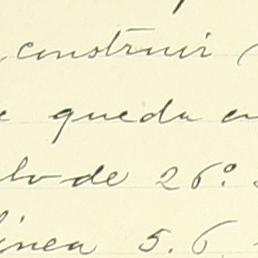 construir
queda en
de 26º.
linea 5.6